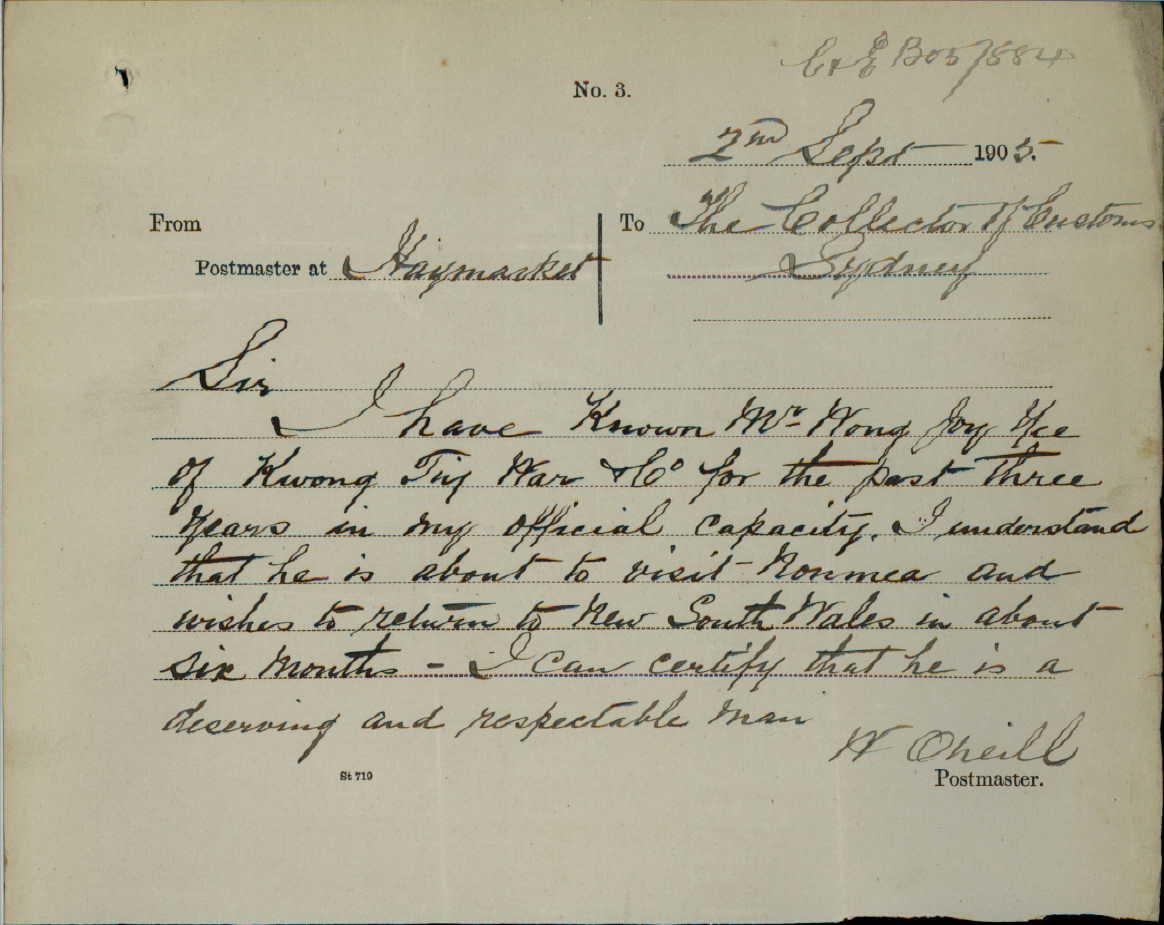 C & E B05/7884
No. 3.
2nd Sept 1905.
From
To The Collector of Customs
Postmaster at Haymarket
Sydney
Sir
I have Known Mr Wong Joy Kee
of Kwong War & Co for the past three
years in my official capacity. I understand
that he is about to visit Noumea and
wishes to return to New South Wales in about
six months - I can certify that he is a
deserving and respectable man
W Oneill
St 719
Postmaster.